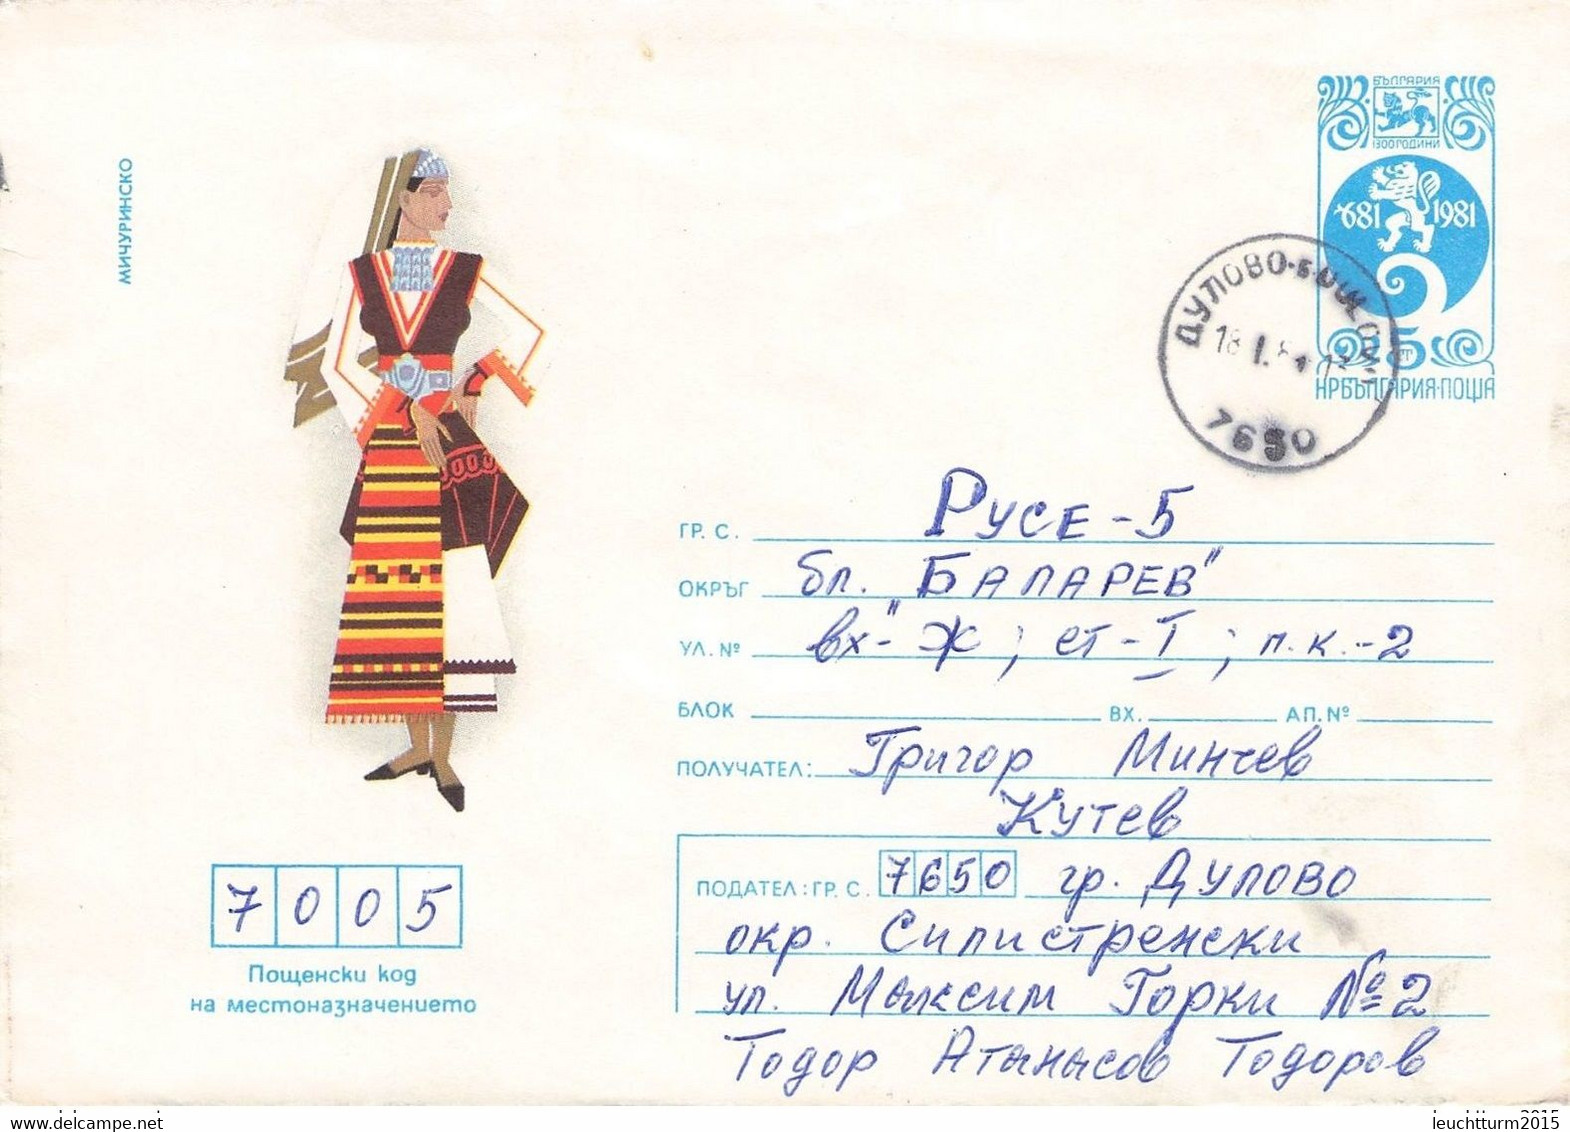 МИЧУРИНСКО
БЪЛГАРИЯ
1300 ГОДИНИ
681 1981
5 СТ
НРБЪЛГАРИЯ·ПОЩА
ДУЛОВО
18 I.
7650
ГР. С. РУСЕ-5
ОКРЪГ бл. "БАЛАРЕВ"
УЛ. № вх-"Ж; ет-I; п.к.-2
БЛОК ВХ. АП. №
ПОЛУЧАТЕЛ: Григор Минчев
Кутев
ПОДАТЕЛ: ГР. С. 7650 гр. Дулово
окр. Силистренски
ул. Максим Горки №2
Тодор Атанасов Тодоров
7005
Пощенски код
на местоназначението
www.delcampe.net
leuchtturm2015